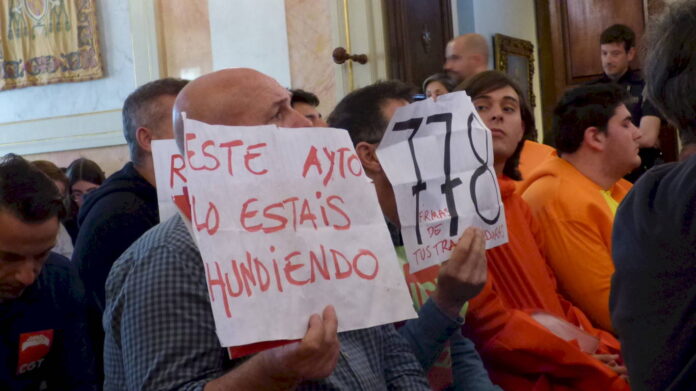 ESTE AYTO
LO ESTAIS
HUNDIENDO
778
FIRMAS
DE
TUS TRA
CGT